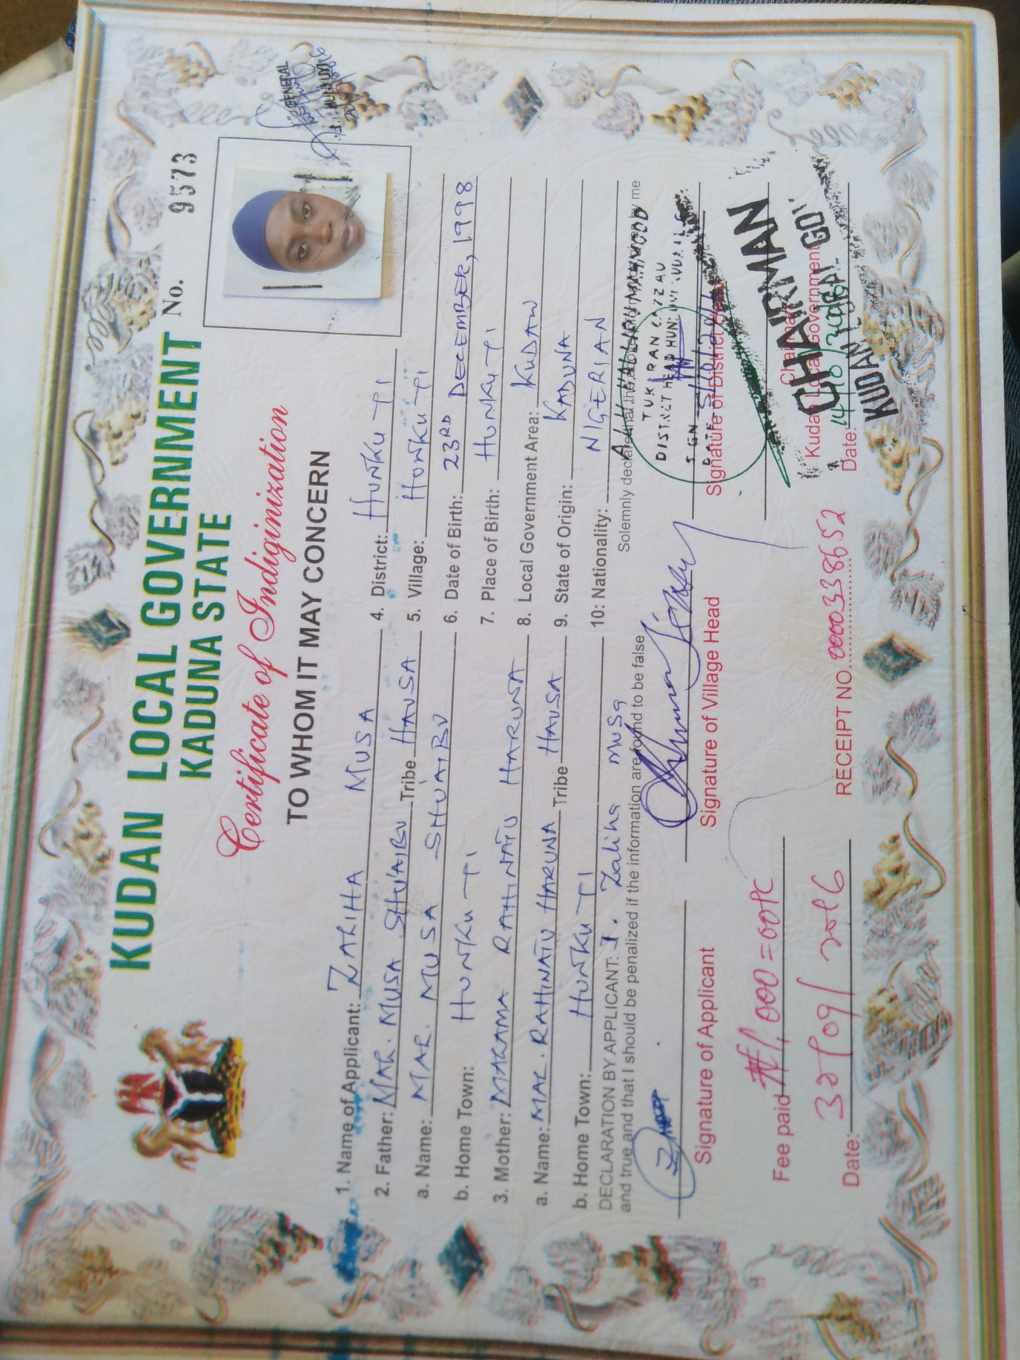 KUDAN LOCAL GOVERNMENT
KADUNA STATE
No. 9573
Certificate of Indiginization
TO WHOM IT MAY CONCERN
1. Name of Applicant: ZALIHA MUSA
2. Father: MAL. MUSA SHUAIBU Tribe HAUSA
a. Name: MAL. MUSA SHUAIBU
b. Home Town: HUNKUTI
3. Mother: MALAMA RAHINATU HARUNA
a. Name: MAL. RAHINATU HARUNA Tribe HAUSA
b. Home Town: HUNKUTI
4. District: HUNKUTI
5. Village: HUNKUTI
6. Date of Birth: 23RD DECEMBER, 1998
7. Place of Birth: HUNKUTI
8. Local Government Area: KUDAN
9. State of Origin: KADUNA
10: Nationality: NIGERIAN
DECLARATION BY APPLICANT: I. Zaliha musa Solemnly declare that the by me
and true and that I should be penalized if the information are found to be false
DISTRICT HEAD HUNKUTI
SIGN
DATE
Signature of Applicant
Signature of Village Head
Signature of District
Fee paid ₦1,000=00K
CHAIRMAN
Kudan Local Government
KUDAN LOCAL GOVT
Date: 
RECEIPT NO. 0000338652
Date: